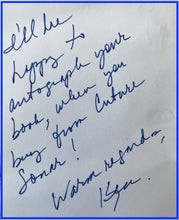 I'll be
happy to
autograph your
book, when you
buy from Cuture
Sonar!
Warm regards,